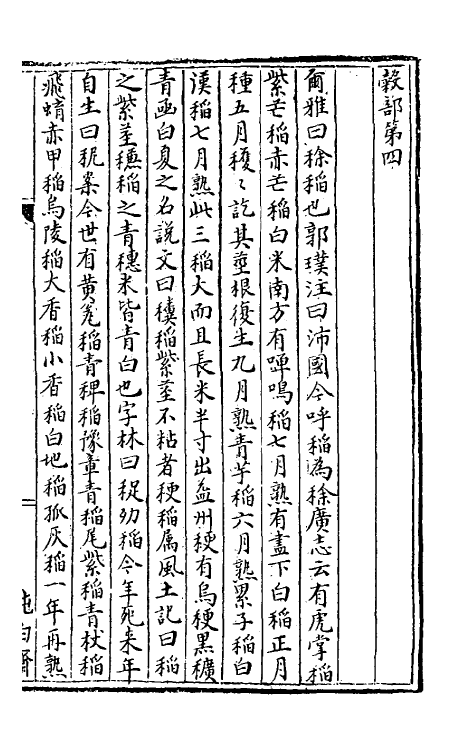 糓部第四
爾雅曰稌稻也郭璞注曰沛國今呼稻為稌廣志云有虎掌稻
紫芒稻赤芒稻白米南方有嘽鳴稻七月熟有蓋下白稻正月
種五月穫〻訖其莖根復生九月熟青芋稻六月熟累子稻白
漢稻七月熟此三稻大而且長米半寸出益州稉有烏稉黑穬
青函白夏之名說文曰穬稻紫莖不粘者稉稻屬風土記曰稻
之紫莖穗稻之青穗米皆青白也字林曰秜刕稻今年死来年
自生曰秜案今世有黄瓮稻青稗稻豫章青稻尾紫稻青杖稻
飛蜻赤甲稻烏陵稻大香稻小香稻白地稻孤灰稻一年再熟